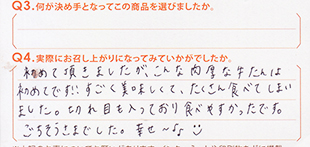 Q3.何が決め手となってこの商品を選びましたか。
Q4.実際にお召し上がりになってみていかがでしたか。
初めて頂きましたが、こんな肉厚な牛たんは
初めてです!! すごく美味しくて、たくさん食べてしまい
ました。切れ目も入っており食べやすかったです。
ごちそうさまでした。幸せ〜♪